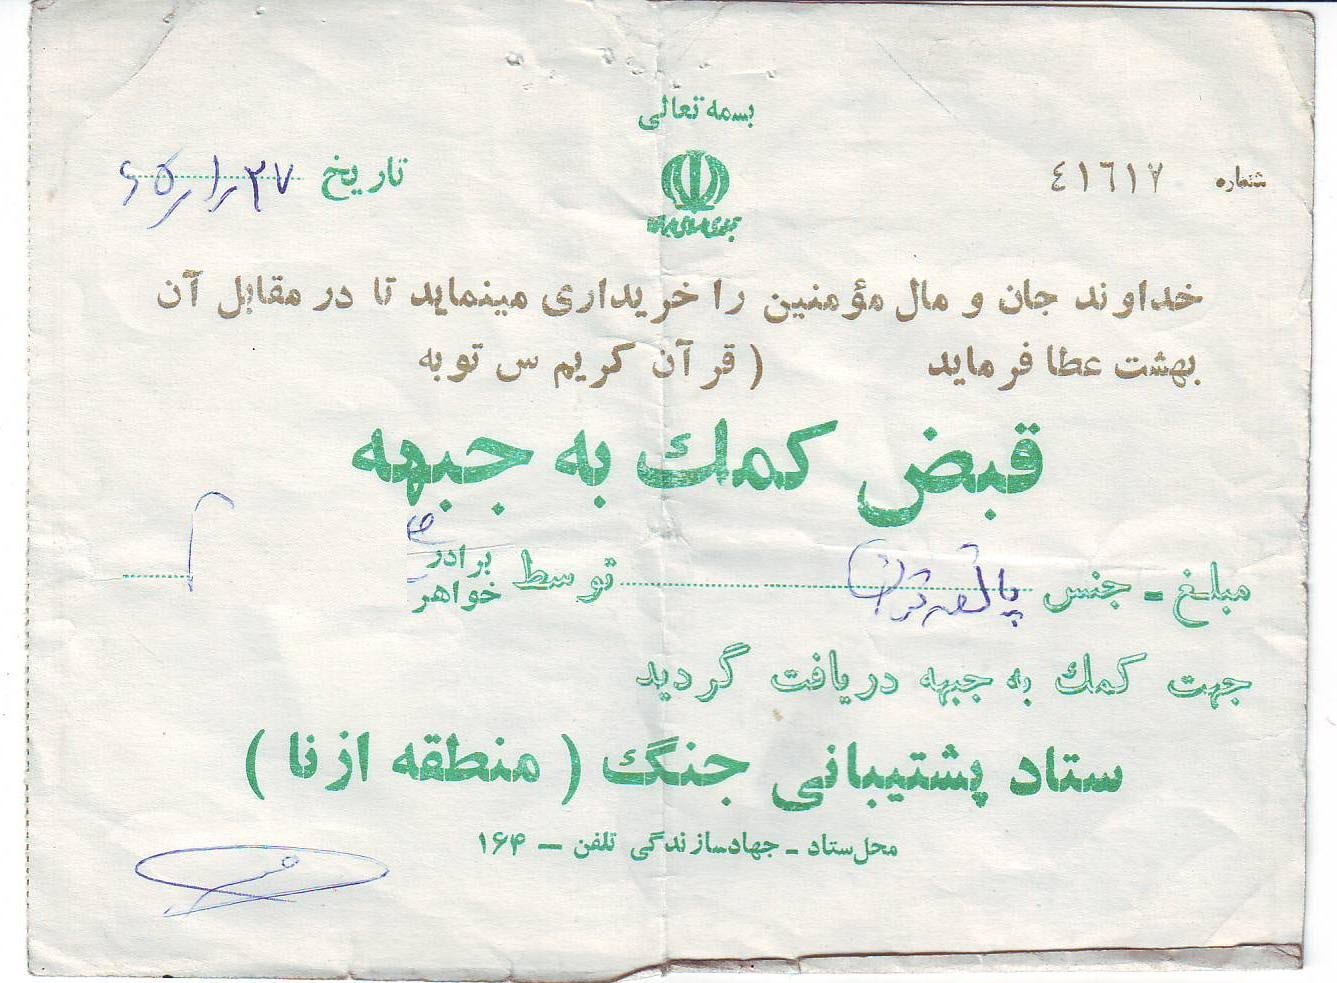 بسمه تعالی
شماره ٤١٦١٧
تاریخ ۲۷/۱/۶۵
جمهوری اسلامی ایران
خداوند جان و مال مؤمنین را خریداری مینماید تا در مقابل آن
بهشت عطا فرماید ( قرآن کریم س توبه
قبض کمک به جبهه
مبلغ - جنس پانصد تومان توسط برادر
خواهر
جهت کمک به جبهه دریافت گردید
ستاد پشتیبانی جنگ ( منطقه ازنا )
محل ستاد - جهاد سازندگی تلفن - ۱۶۴